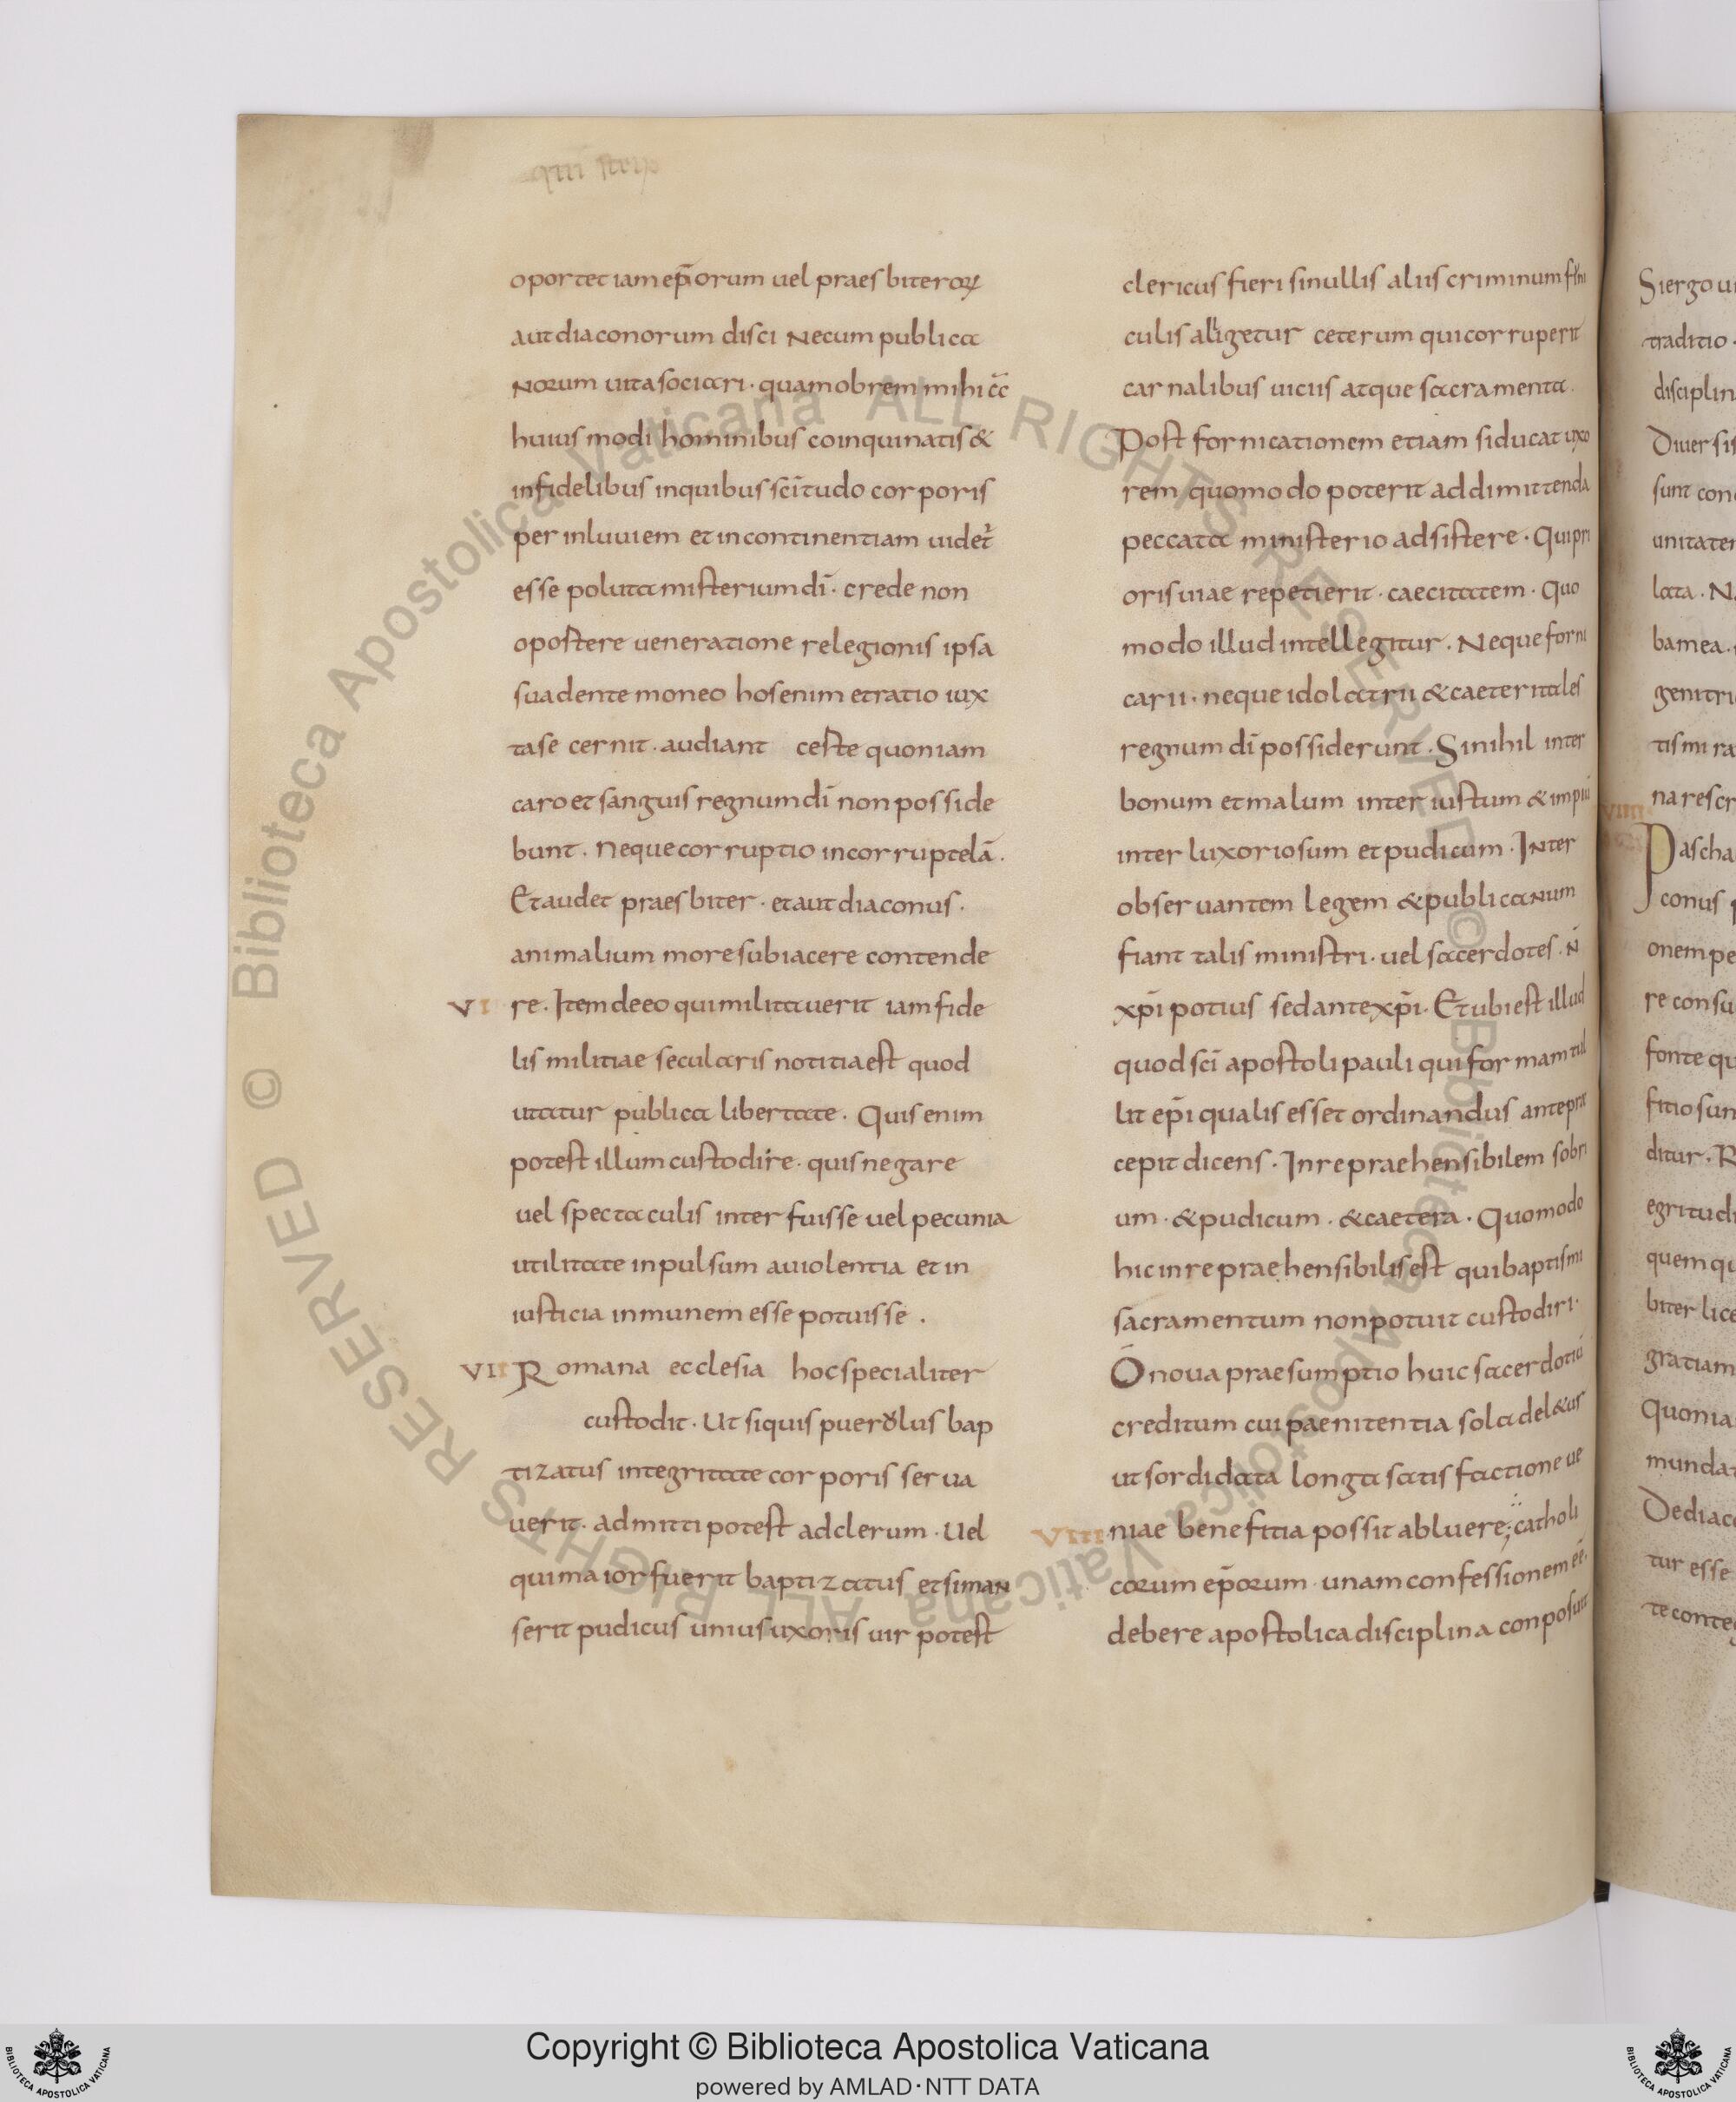 oportet iam ep̄orum uel praesbiteroꝝ
aut diaconorum disci Necum publica
Norum uita sociari · quamobrem mihi cc̄
huius modi hominibus coinquinatis &
infidelibus inquibus sc̄itudo corporis
per inluuiem et incontinentiam uidet̄
esse poluta misterium dī · crede non
opostere ueneratione relegionis ipsa
suadente moneo hos enim et ratio iux
ta se cernit · audiant ceste quoniam
caro et sanguis regnum dī non posside
bunt · Neque corruptio incorruptelā ·
Et audet praesbiter · et aut diaconus ·
animalium more subiacere contende
VI re · Item de eo qui militauerit iam fide
lis militiae secularis notitia est quod
utatur publica libertate · Quis enim
potest illum custodire · quis negare
uel spectaculis inter fuisse uel pecunia
utilitate inpulsum a uiolentia et in
iusticia inmunem esse potuisse ·
VII Romana ecclesia hoc specialiter
custodit · Ut siquis puerolus bap
tizatus integritate corporis serua
uerit · admitti potest ad clerum · Uel
qui maior fuerit baptizatus et si man
serit pudicus unius uxoris uir potest
clericus fieri si nullis aliis criminum
culis alligetur ceterum qui corruperit
carnalibus uiciis atque sacramenta ·
Post fornicationem etiam si ducat uxo
rem quomodo poterit ad dimittenda
peccata ministerio adsistere · Qui pri
oris uiae repetierit · caecitatem · Quo
modo illud intellegitur · Neque forni
carii · neque idolatrii & caeteri tales
regnum dī possiderunt · Si nihil inter
bonum et malum inter iustum & impiū
inter luxoriosum et pudicum · Inter
obseruantem legem & publicanum
fiant talis ministri · uel sacerdotes · N̄
xp̄i potius sed antexp̄i · Et ubi est illud
quod sc̄i apostoli pauli qui formam tul
lit ep̄i qualis esset ordinandus ante prae
cepit dicens · Inrepraehensibilem sobri
um · & pudicum · & caetera · Quomodo
hic inrepraehensibilis est qui baptismi
sacramentum non potuit custodiri ·
O noua praesumptio huic sacerdotiū
creditum cui paenitentia sola del&us
ut sordidata longa satisfactione ue
VIII niae benefitia possit abluere; catholi
corum ep̄orum · unam confessionem eē ·
debere apostolica disciplina conposuit
Si ergo
traditio ·
disciplin
Diuersis
sunt con
unitate
lata · N
bamea ·
genitri
tis mi ra
na rescr
VIIII
Pascha
conus
onem pe
re consu
fonte qu
fitio sun
ditur · R
egritudi
quem qu
biter lice
gratiam
Quonia
mundat
De diaco
tur esse
te conte
© Biblioteca Apostolica Vaticana ALL RIGHTS RESERVED © Biblioteca Apostolica Vaticana ALL RIGHTS RESERVED
Copyright © Biblioteca Apostolica Vaticana
powered by AMLAD·NTT DATA
BIBLIOTECA APOSTOLICA VATICANA
BIBLIOTECA APOSTOLICA VATICANA